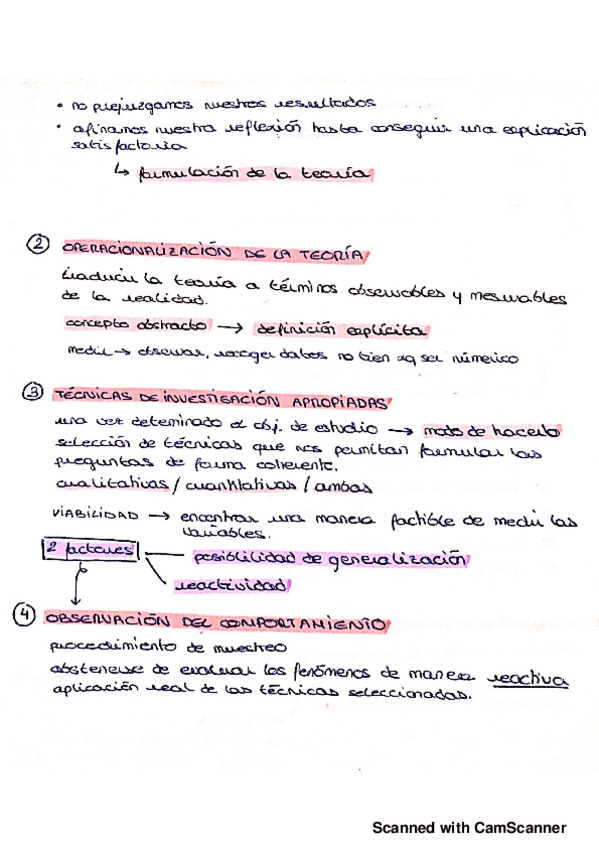 • no prejuzgamos nuestros resultados
• afinamos nuestra reflexión hasta conseguir una explicación
satisfactoria
↳ formulación de la teoría
② OPERACIONALIZACIÓN DE LA TEORÍA
traducir la teoría a términos observables y mesurables
de la realidad.
concepto abstracto → definición explícita
medir → observar, recoger datos no tien xq ser numérico
③ TÉCNICAS DE INVESTIGACIÓN APROPIADAS
una vez determinado el obj. de estudio → modo de hacerlo
selección de técnicas que nos permitan formular las
preguntas de forma coherente.
cualitativas / cuantitativas / ambas
VIABILIDAD → encontrar una manera factible de medir las
variables.
2 factores
posibilidad de generalización
reactividad
④ OBSERVACIÓN DEL COMPORTAMIENTO
procedimiento de muestreo
abstenerse de evaluar los fenómenos de manera reactiva
aplicación real de las técnicas seleccionadas.
Scanned with CamScanner